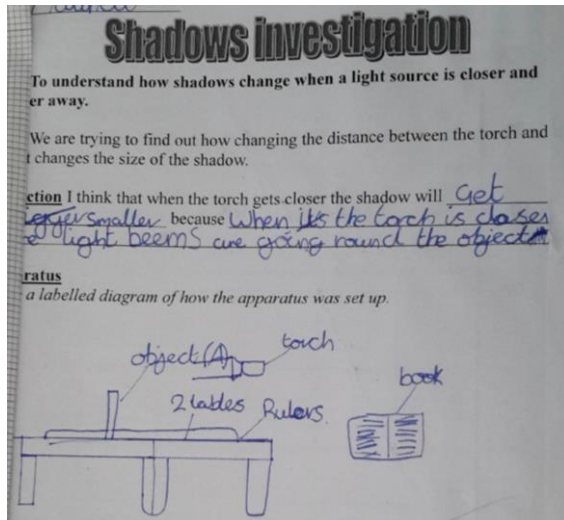 Shadows investigation
To understand how shadows change when a light source is closer and
er away.
We are trying to find out how changing the distance between the torch and
t changes the size of the shadow.
ction I think that when the torch gets closer the shadow will Get
smaller because when the torch is closer
e light beems are going round the object
ratus
a labelled diagram of how the apparatus was set up.
object (A)
torch
book
2 tables
Rulers.